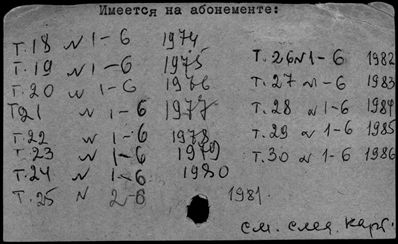 Имеется на абонементе:
Т.18 N 1-6 1974
Т.19 N 1-6 1975
Т.20 N 1-6 1976
Т21 N 1-6 1977
Т.22 N 1-6 1978
Т.23 N 1-6 1979
Т.24 N 1-6 1980
Т.25 N 2-6 1981.
Т.26 N 1-6 1982
Т.27 N 1-6 1983
Т.28 N 1-6 1984
Т.29 N 1-6 1985
Т.30 N 1-6 1986
см. след. карт.